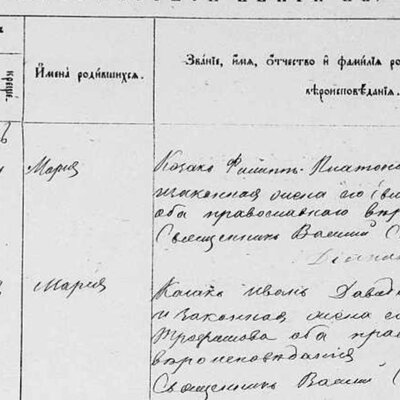 креще.
Имена родившихся.
Званіе, имя, отчество и фамилія ро
вѣроисповѣданія.
Мария
Козакъ Филиппъ Платоно
и законная жена его
оба православнаго вѣр
Священникъ Василий С
Мария
Козакъ Иванъ Давид
и законная жена е
Трофимова оба пра
вѣроисповѣданія
Священникъ Василий С